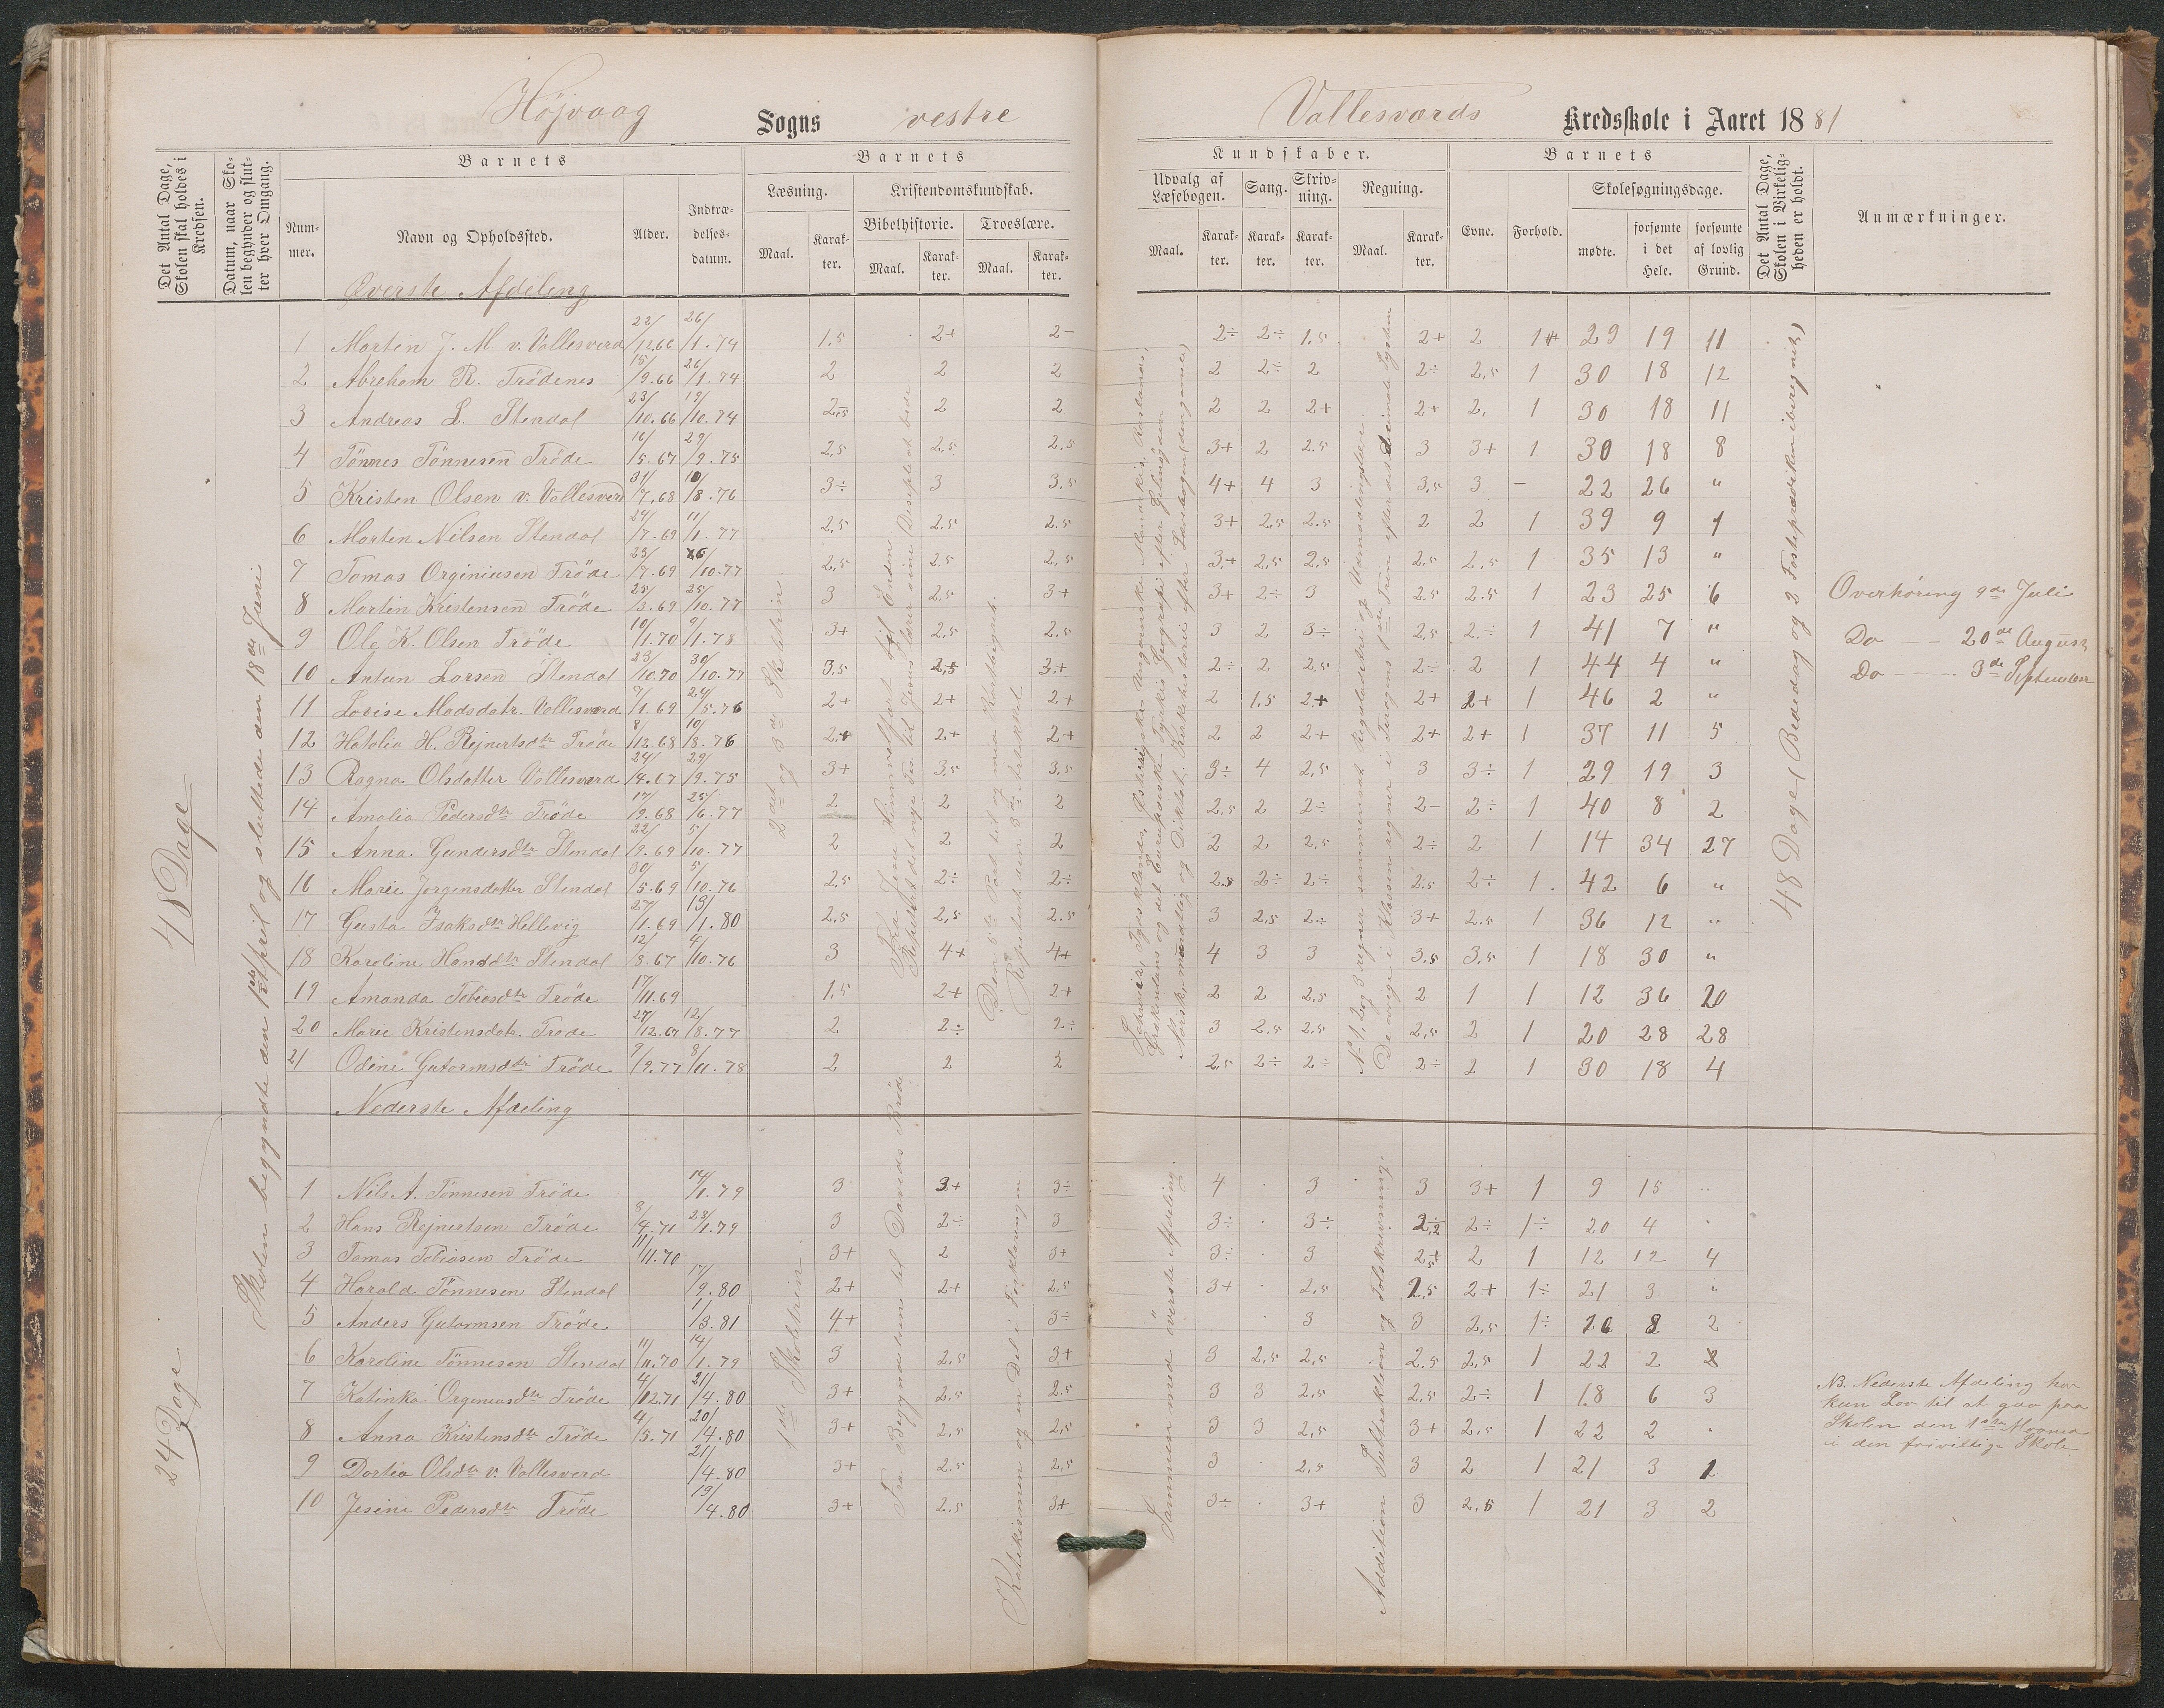 Höjvaag Sogns vestre
Vallesværds Kredsskole i Aaret 1881
Det Antal Dage, Skolen skal holdes i Kredsen.
Datum, naar Skolen begynder og slutter hver Omgang.
Barnets
Nummer.
Navn og Opholdssted.
Alder.
Indtrædelsesdatum.
Barnets
Læsning.
Maal.
Karakter.
Kristendomskundskab.
Bibelhistorie.
Maal.
Karakter.
Troeslære.
Maal.
Karakter.
Kundskaber.
Udvalg af Læsebogen.
Maal.
Karakter.
Sang.
Karakter.
Skrivning.
Karakter.
Regning.
Maal.
Karakter.
Barnets
Evne.
Forhold.
Skolesøgningsdage.
mødte.
forsømte i det Hele.
forsømte af lovlig Grund.
Det Antal Dage, Skolen i Virkeligheden er holdt.
Anmærkninger.
Øverste Afdeling
48 Dage
Skolen begyndte den 1ste April og sluttede den 18de Juni
2det og 3de Skoletrin
48 Dage (Bededag og 2
1 Martin J. M. v. Vallesverd 22/12.66 26/1.74 1,5 2+ 2- 2÷ 2÷ 1,5 2+ 2 1 29 19 11
2 Abreham R. Trödenes 15/9.66 26/1.74 2 2 2 2 2÷ 2 2÷ 2,5 1 30 18 12
3 Andreas L. Stendal 23/10.66 19/10.74 2,5 2 2 2 2 2+ 2+ 2, 1 30 18 11
4 Tönnes Tönnesen Tröde 16/5.67 29/9.75 2,5 2,5 2,5 3+ 2 2.5 3 3+ 1 30 18 8
5 Kristen Olsen v. Vallesverd 31/7.68 10/8.76 3÷ 3 3,5 4+ 4 3 3,5 3 - 22 26 "
6 Morten Nilsen Stendal 24/7.69 11/1.77 2,5 2,5 2.5 3+ 2,5 2.5 2 2 1 39 9 1
7 Tomas Orginiusen Tröde 23/7.69 26/10.77 2,5 2.5 2,5 3+ 2,5 2,5 2.5 2,5 1 35 13 "
8 Martin Kristensen Tröde 25/3.69 25/10.77 3 2,5 3+ 3+ 2÷ 3 2.5 2.5 1 23 25 6
Overhöring 9de Juli
9 Ole K. Olsen Tröde 10/1.70 9/1.78 3+ 2,5 2.5 3 2 3÷ 2,5 2÷ 1 41 7 "
Do - - 20de August
10 Antun Larsen Stendal 23/10.70 30/10.77 3,5 2,5 3+ 2÷ 2 2,5 2÷ 2 1 44 4 "
Do - - - 3de September
11 Lovise Madsdatr. Vallesverd 7/1.69 24/5.76 2+ 2+ 2+ 2 1,5 2+ 2+ 2+ 1 46 2 "
12 Hatalia H. Rejnertsdtr Tröde 8/12.68 10/8.76 2+ 2+ 2+ 2 2 2+ 2+ 2+ 1 37 11 5
13 Ragna Olsdatter Vallesverd 24/4.67 29/9.75 3+ 3,5 3.5 3÷ 4 2,5 3 3÷ 1 29 19 3
14 Amalia Pedersdtr Tröde 17/9.68 25/6.77 2 2 2 2,5 2 2÷ 2- 2÷ 1 40 8 2
15 Anna Gundersdtr Stendal 22/9.69 5/10.77 2 2 2 2 2 2,5 2÷ 2 1 14 34 27
16 Marie Jorgensdatter Stendal 30/5.69 5/10.76 2,5 2÷ 2÷ 2,5 2÷ 2÷ 2.5 2÷ 1 42 6 "
17 Gusta Isaksdtr Hellevig 27/1.69 13/1.80 2,5 2,5 2.5 3 2,5 2÷ 3+ 2.5 1 36 12 "
18 Karoline Hansdtr Stendal 12/3.67 4/10.76 3 4+ 4+ 4 3 3 3,5 3,5 1 18 30 "
19 Amanda Tobiasdtr Tröde 17/11.69 1,5 2+ 2+ 2 2 2,5 2 1 1 12 36 20
20 Marie Kristensdatr. Tröde 27/12.67 12/8.77 2 2÷ 2÷ 3 2.5 2.5 2,5 2 1 20 28 28
21 Odine Gutormsdtr Tröde 9/9.77 8/11.78 2 2 2 2,5 2÷ 2÷ 2÷ 2 1 30 18 4
Nederste Afdeling
24 Dage
1ste Skoletrin
Fra Begyndelsen til Davids Bröde
Katekismen og en Del i Forklaringen
Sammen med överste Afdeling.
Addition Subtraktion og Talskrivning.
1 Nils A. Tönnesen Tröde 14/1.79 3 3+ 3÷ 4 3 3 3+ 1 9 15 "
2 Hans Rejnertsen Tröde 8/4.71 23/1.79 3 2÷ 3 3÷ 3÷ 2÷ 2÷ 1÷ 20 4 "
3 Tomas Tobiasen Tröde 11/11.70 3+ 2 3+ 3÷ 3 2,5 2 1 12 12 4
4 Harald Tönnesen Stendal 17/9.80 2+ 2+ 2,5 3+ 2,5 2,5 2+ 1÷ 21 3 "
5 Anders Gutormsen Tröde 1/3.81 4+ 3÷ 3 3 2,5 1÷ 16 8 2
6 Karoline Tönnesen Stendal 11/11.70 14/1.79 3 2,5 3+ 3 2,5 2,5 2.5 2,5 1 22 2
7 Katinka Orgeniusdtr Tröde 4/12.71 21/4.80 3+ 2,5 2.5 3 3 2,5 2,5 2÷ 1 18 6 3
8 Anna Kristensdtr Tröde 4/5.71 20/4.80 3+ 2,5 2,5 3 3 2,5 3+ 2,5 1 22 2 "
9 Dortea Olsdtr v. Vallesverd 21/4.80 3+ 2.5 2,5 3 2,5 3 2 1 21 3 1
10 Jesine Pedersdtr Tröde 19/4.80 3+ 2,5 3+ 3÷ 3+ 3 2,5 1 21 3 2
NB. Nederste Afdeling har
kun Lov til at gaa paa
Skolen den 1ste Maaned
i den frivillige Skole